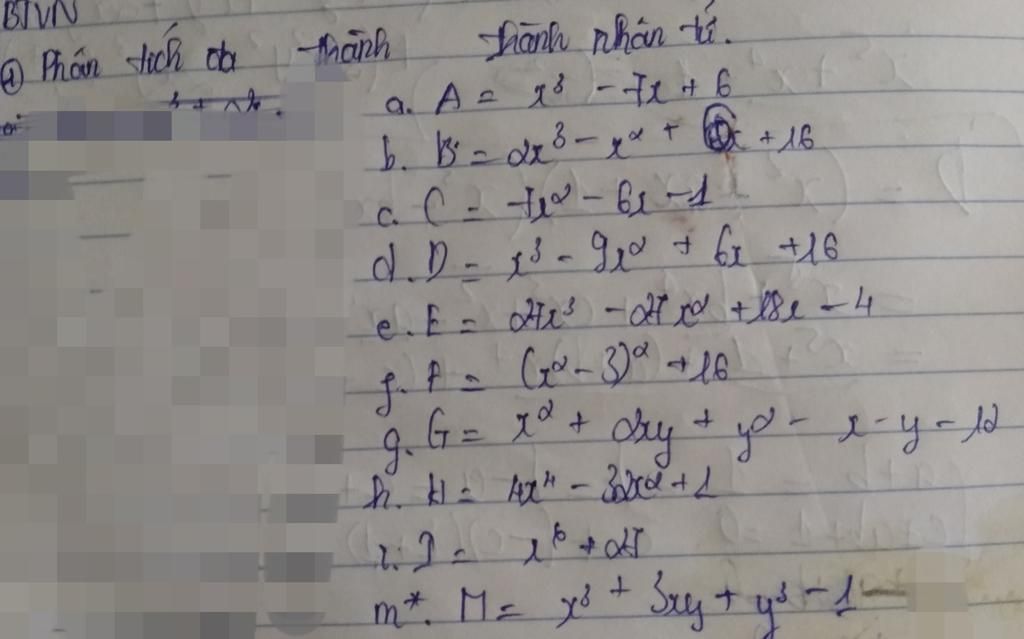 BTVN
① Phân tích đa thành thành nhân tử.
a. A = x³ - 7x + 6
b. B = 2x³ - x² + + 16
c. C = 7x² - 6x - 1
d. D = x³ - 9x² + 6x + 16
e. E = 27x³ - 27x² + 18x - 4
f. F = (x² - 3)² + 16
g. G = x² + 2xy + y² - x - y - 12
h. H = 4x⁴ - 32x² + 1
i. I = x⁶ + 27
m*. M = x³ + 3xy + y³ - 1